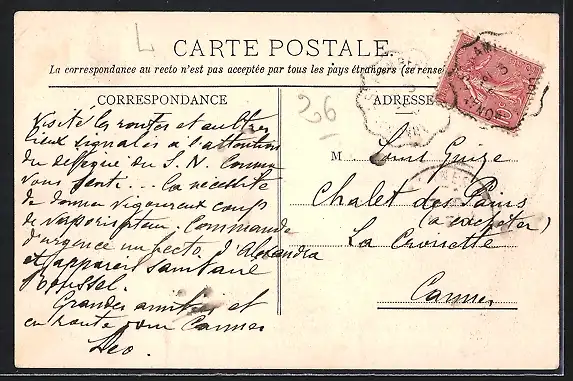 L
CARTE POSTALE.
La correspondance au recto n'est pas acceptée par tous les pays étrangers (se rense
CORRESPONDANCE
ADRESSE
26
Visité les routes et autres
lieux signalés à l'attention
du S. N.
Vous senti... La nécessité
de donner vigoureux coups
de vaporisateur Commande
d'urgence un hecto d'Alexandra
et appareil sanitaire
Roussel.
Grandes amitiés et
en route pour Cannes
Leo.
M Louis
Chalet des Pains
(à exécuter)
La Croisette
Cannes